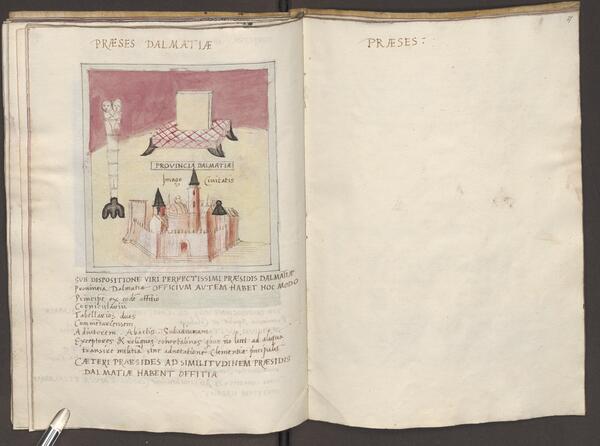 PRÆSES DALMATIÆ
PROVINCIA DALMATIÆ
Imago Civitatis
SUB DISPOSITIONE VIRI PERFECTISSIMI PRÆSIDIS DALMATIÆ
Provincia Dalmatia OFFICIUM AUTEM HABET HOC MODO
Principe ex eodē offitio
Cornicularium
Tabellarios duos
Commentariensem
Adiutorem Ab actis Subadiuvam
Exceptores & reliquos cohortalinos quos nō licet ad aliam
transire militiā sine adnotatione Clementiæ principalis
CÆTERI PRAESIDES AD SIMILITVDINEM PRÆSIDIS
DALMATIÆ HABENT OFFITIA
PRÆSES: